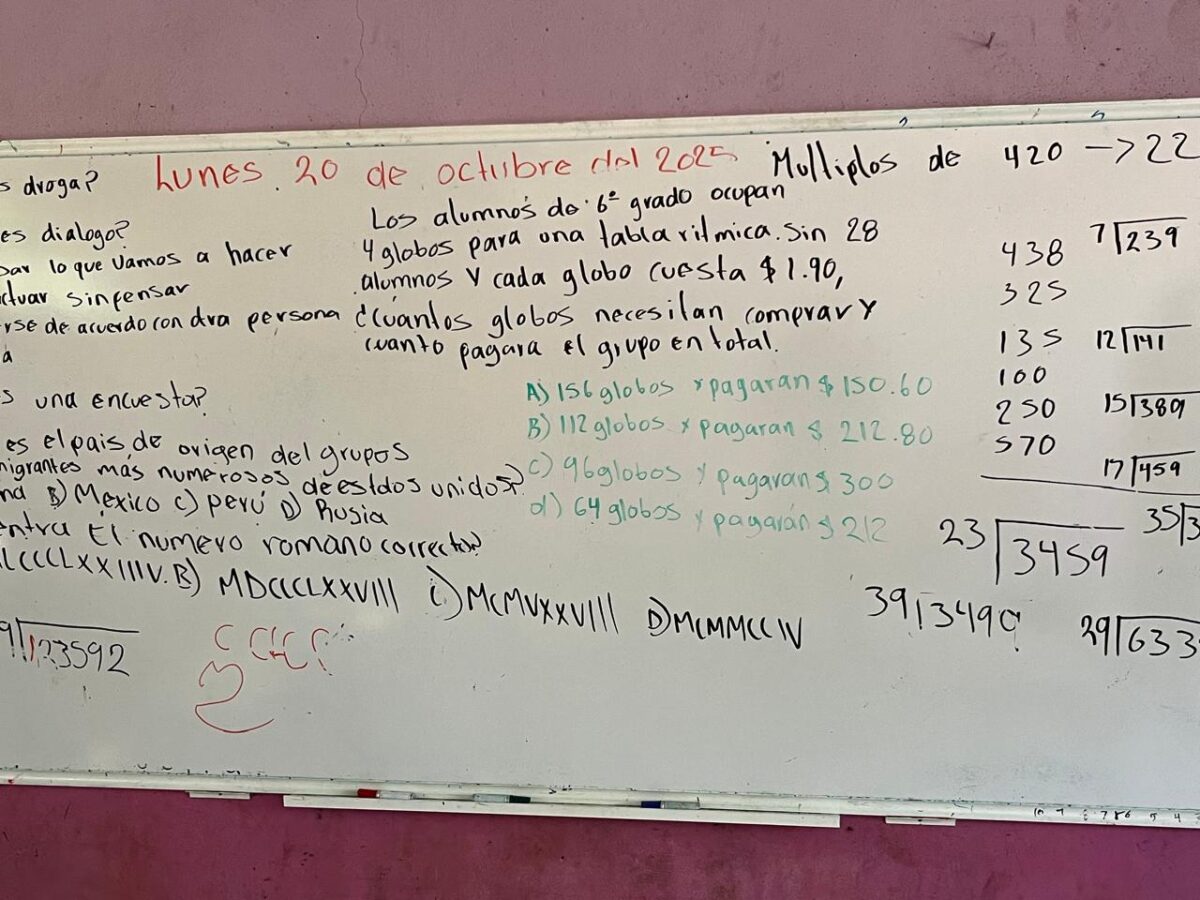 Lunes 20 de octubre del 2025
s droga?
es dialogo?
sar lo que vamos a hacer
ctuar sin pensar
rse de acuerdo con otra persona
a
s una encuesta?
es el pais de origen del grupos
migrantes más numerosos de estdos unidos?
na B) México C) perú D) Rusia
entra El numero romano correcto?
LCCCLXXIIIV. B) MDCCCLXXVIII C) MCMVXXVIII D) MCMMCCIV
9 123592
Los alumnos de 6º grado ocupan
4 globos para una tabla ritmica. Sin 28
alumnos y cada globo cuesta $ 1.90,
¿Cuántos globos necesitan comprar y
cuanto pagara el grupo en total.
A) 156 globos y pagaran $ 150.60
B) 112 globos y pagaran $ 212.80
c) 96 globos y pagaran $ 300
d) 64 globos y pagarán $ 212
Multiplos de 420 -> 22
438
325
135
100
250
570
7 239
12 141
15 389
17 459
35 3
23 3459
39 349
29 633